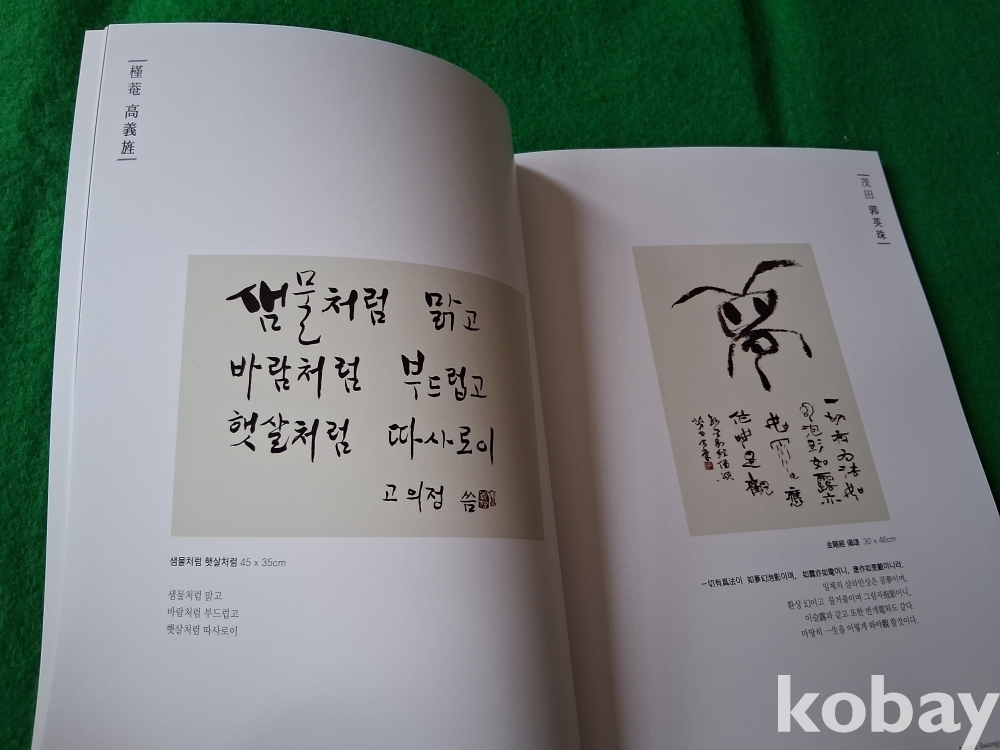 槿菴 高義旌
샘물처럼 맑고
바람처럼 부드럽고
햇살처럼 따사로이
고의정 씀
샘물처럼 햇살처럼 45 x 35cm
샘물처럼 맑고
바람처럼 부드럽고
햇살처럼 따사로이
茂田 郭英珠
一切有爲法如
幻泡影如露亦
如電應
作如是觀
金剛經 偈頌 30 x 46cm
一切有爲法이 如夢幻泡影이며, 如露亦如電이니, 應作如是觀이니라.
일체의 삼라만상은 꿈夢이며,
환상 幻이고 물거품이며 그림자泡影이니,
이슬露과 같고 또한 번개電와도 같다.
마땅히 一生을 이렇게 봐야觀 할것이다.
kobay